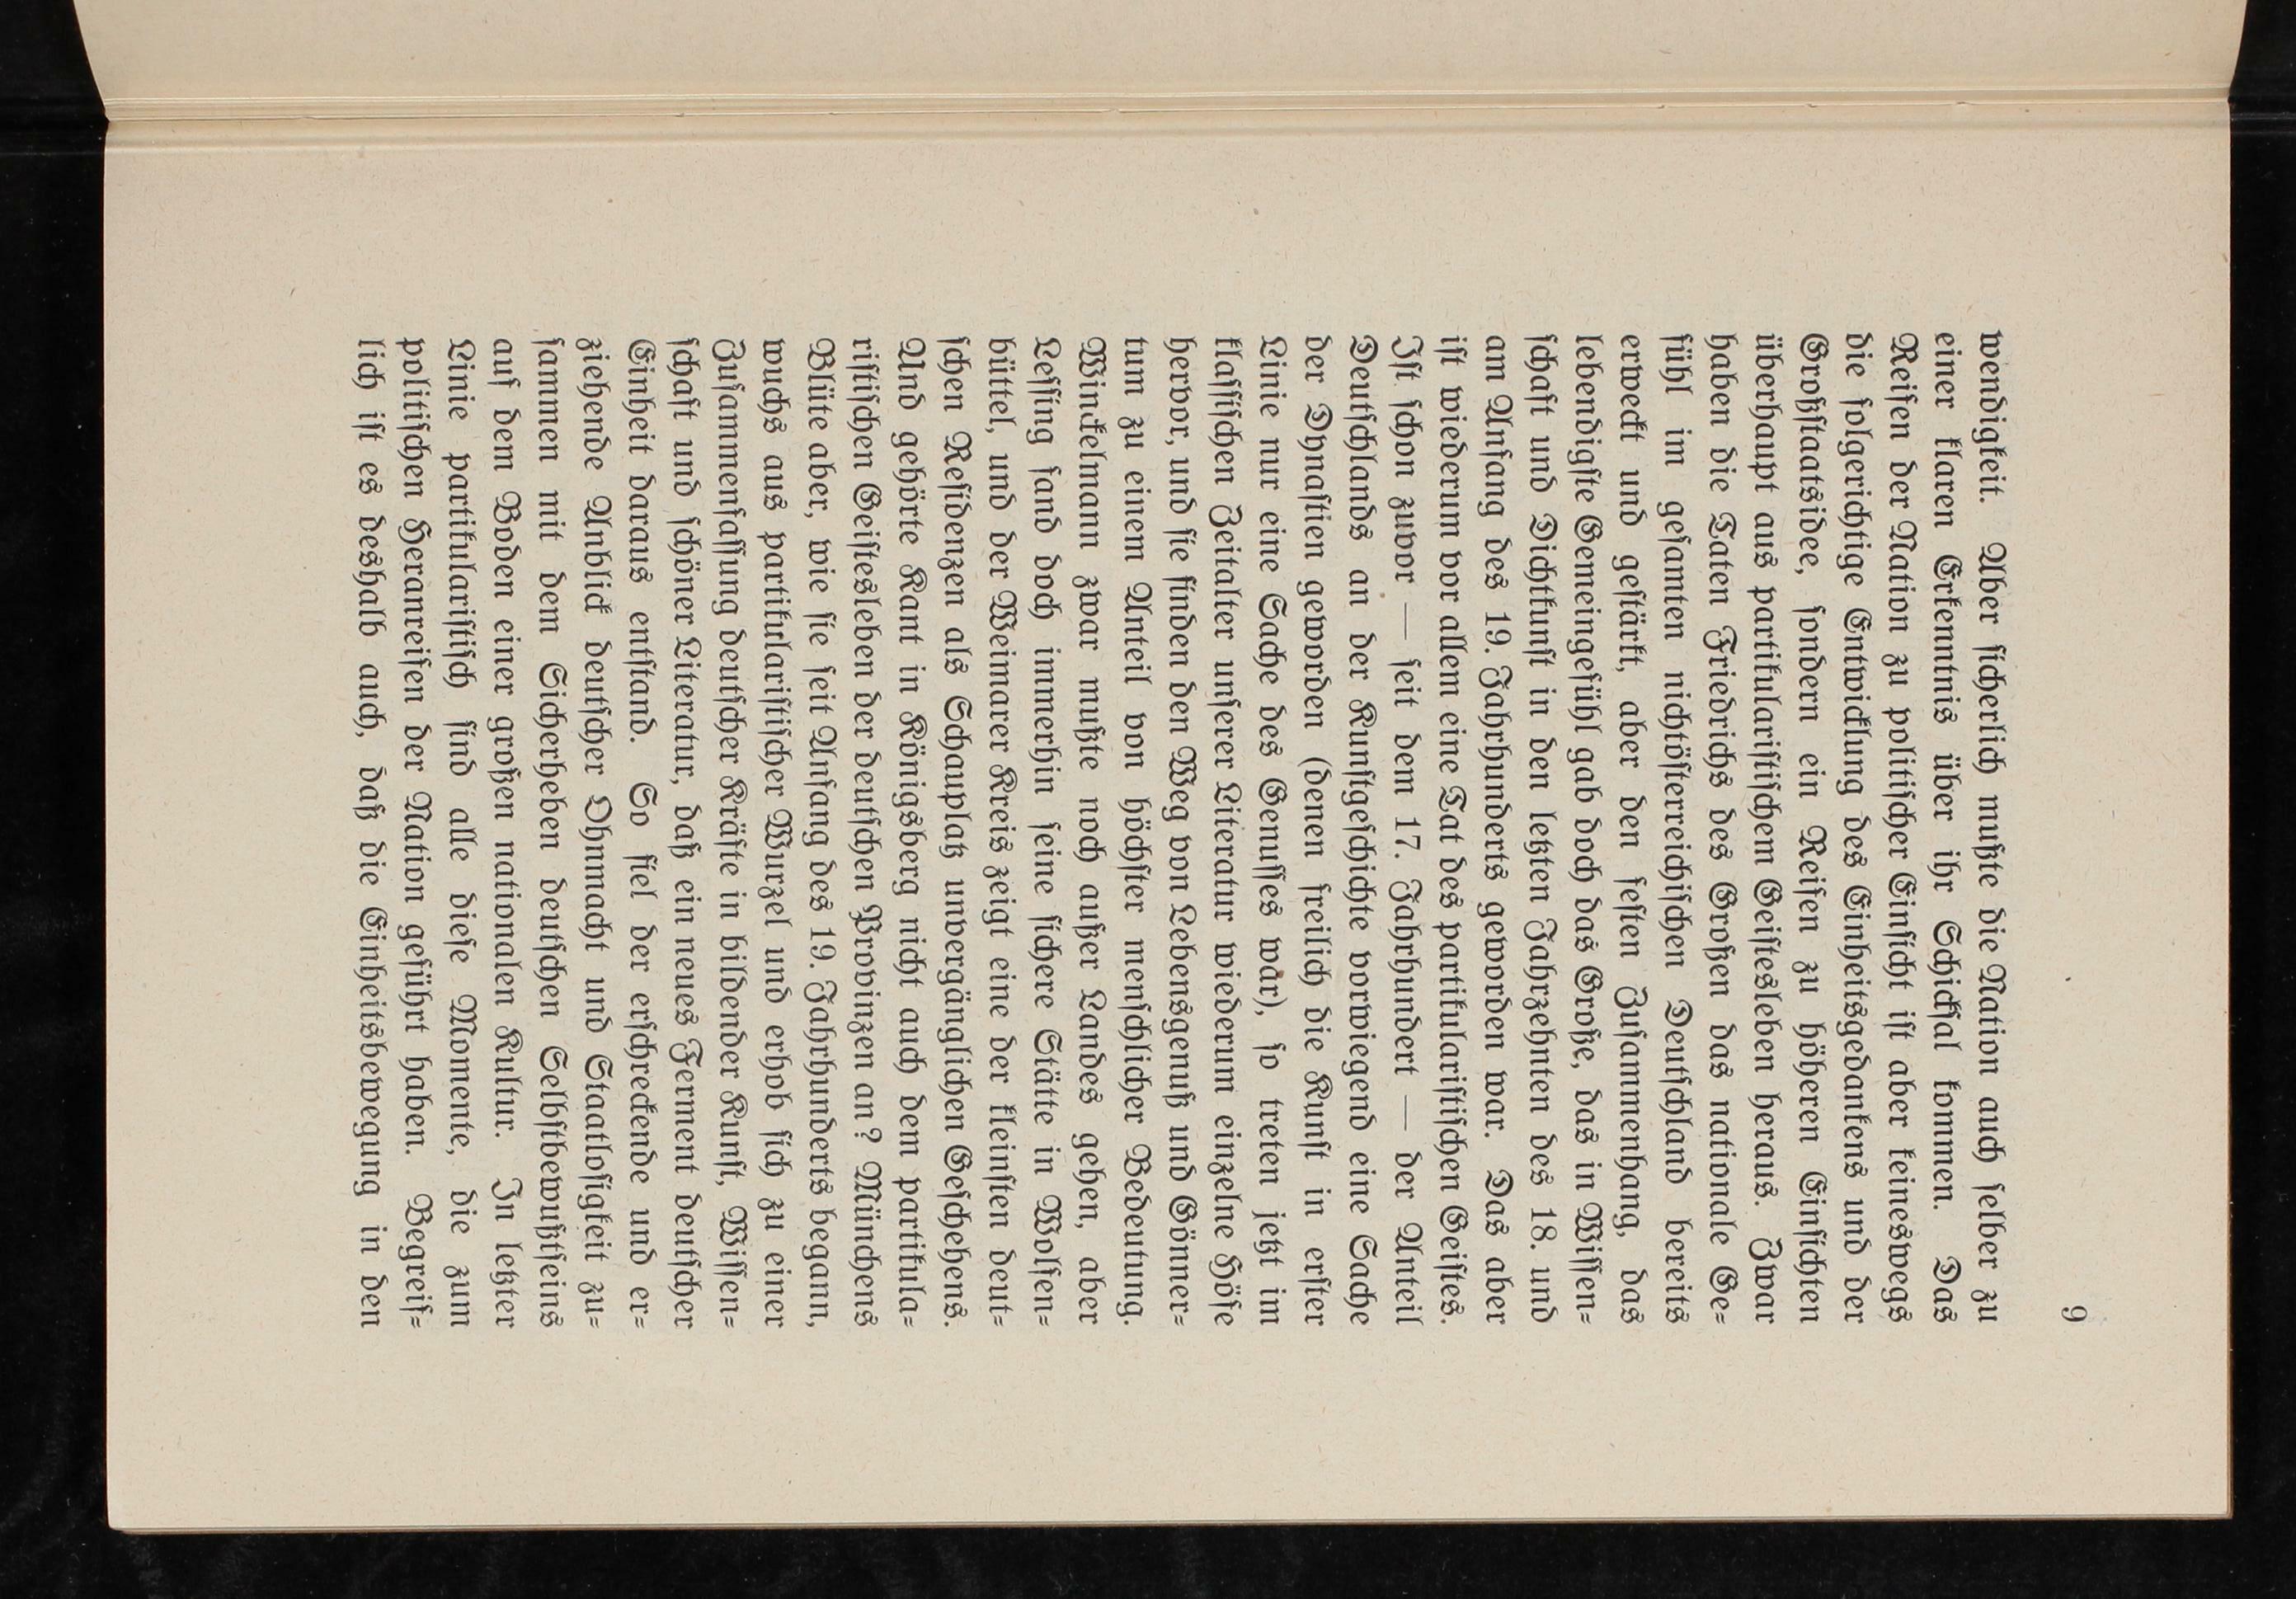 9
wendigkeit. Aber ſicherlich mußte die Nation auch ſelber zu
einer klaren Erkenntnis über ihr Schickſal kommen. Das
Reifen der Nation zu politiſcher Einſicht iſt aber keineswegs
die folgerichtige Entwicklung des Einheitsgedankens und der
Großſtaatsidee, ſondern ein Reifen zu höheren Einſichten
überhaupt aus partikulariſtiſchem Geiſtesleben heraus. Zwar
haben die Taten Friedrichs des Großen das nationale Ge⸗
fühl im geſamten nichtöſterreichiſchen Deutſchland bereits
erweckt und geſtärkt, aber den feſten Zuſammenhang, das
lebendigſte Gemeingefühl gab doch das Große, das in Wiſſen⸗
ſchaft und Dichtkunſt in den letzten Jahrzehnten des 18. und
am Anfang des 19. Jahrhunderts geworden war. Das aber
iſt wiederum vor allem eine Tat des partikulariſtiſchen Geiſtes.
Iſt ſchon zuvor — ſeit dem 17. Jahrhundert — der Anteil
Deutſchlands an der Kunſtgeſchichte vorwiegend eine Sache
der Dynaſtien geworden (denen freilich die Kunſt in erſter
Linie nur eine Sache des Genuſſes war), ſo treten jetzt im
klaſſiſchen Zeitalter unſerer Literatur wiederum einzelne Höfe
hervor, und ſie finden den Weg von Lebensgenuß und Gönner⸗
tum zu einem Anteil von höchſter menſchlicher Bedeutung.
Winckelmann zwar mußte noch außer Landes gehen, aber
Leſſing fand doch immerhin ſeine ſichere Stätte in Wolfen⸗
büttel, und der Weimarer Kreis zeigt eine der kleinſten deut⸗
ſchen Reſidenzen als Schauplatz unvergänglichen Geſchehens.
Und gehörte Kant in Königsberg nicht auch dem partikula⸗
riſtiſchen Geiſtesleben der deutſchen Provinzen an? Münchens
Blüte aber, wie ſie ſeit Anfang des 19. Jahrhunderts begann,
wuchs aus partikulariſtiſcher Wurzel und erhob ſich zu einer
Zuſammenfaſſung deutſcher Kräfte in bildender Kunſt, Wiſſen⸗
ſchaft und ſchöner Literatur, daß ein neues Ferment deutſcher
Einheit daraus entſtand. So fiel der erſchreckende und er⸗
ziehende Anblick deutſcher Ohnmacht und Staatloſigkeit zu⸗
ſammen mit dem Sicherheben deutſchen Selbſtbewußtſeins
auf dem Boden einer großen nationalen Kultur. In letzter
Linie partikulariſtiſch ſind alle dieſe Momente, die zum
politiſchen Heranreifen der Nation geführt haben. Begreif⸗
lich iſt es deshalb auch, daß die Einheitsbewegung in den